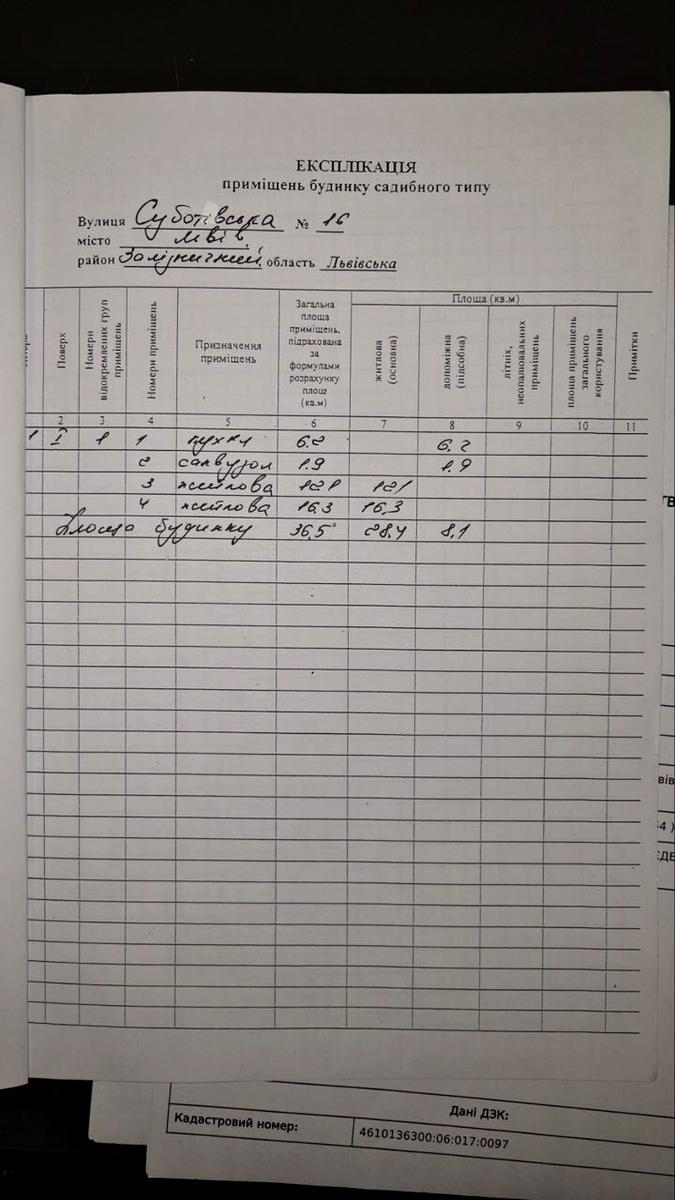 ЕКСПЛІКАЦІЯ
приміщень будинку садибного типу
Вулиця Суботівська № 16
місто Львів,
район Залізничний, область Львівська
Поверх
Номери відокремлених груп приміщень
Номери приміщень
Призначення приміщень
Загальна площа приміщень, підрахована за формулами розрахунку площ (кв.м)
Площа (кв.м)
житлова (основна)
допоміжна (підсобна)
літніх, неопалювальних приміщень
площа приміщень загального користування
Примітки
2 3 4 5 6 7 8 9 10 11
1 I 1 1 кухня 6.2 6.2
2 санвузол 1.9 1.9
3 житлова 12.1 12.1
4 житлова 16.3 16.3
Площа будинку 36,5 28.4 8,1
ТВ
вів
54 )
ЄДЕ
Дані ДЗК:
Кадастровий номер: 4610136300:06:017:0097